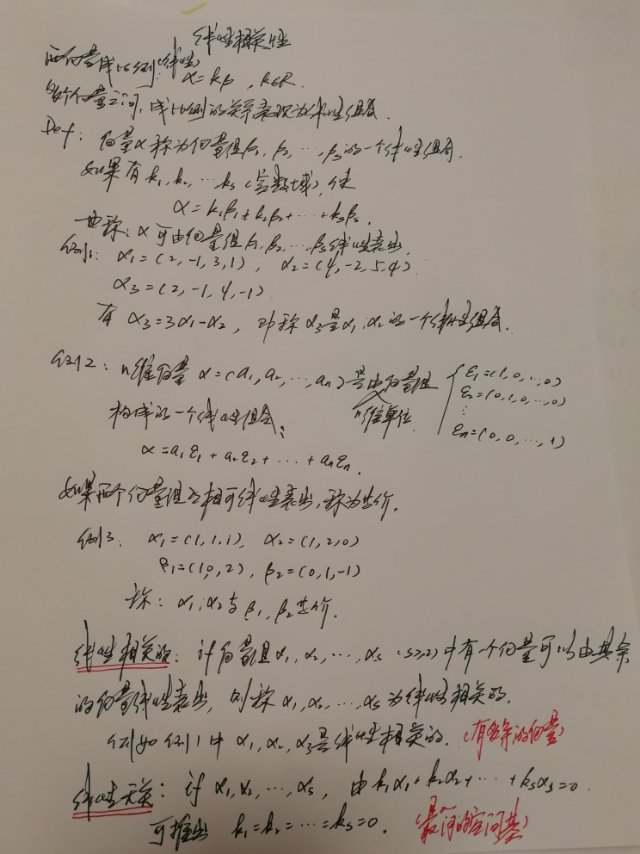 线性相关性
两向量成比例(线性): α=kβ, k∈R.
多个向量之间,成比例的关系表现为线性组合.
Def: 向量α称为向量组β₁, β₂, …, βs的一个线性组合,
如果有k₁, k₂, …ks (常数域), 使
α=k₁β₁+k₂β₂+…+ksβs.
也称: α可由向量组β₁, β₂, …, βs线性表出.
例1: α₁=(2,-1,3,1), α₂=(4,-2,5,4)
α₃=(2,-1,4,-1)
有 α₃=3α₁-α₂, 即称α₃是α₁, α₂的一个线性组合.
例2: n维向量 α=(a₁, a₂, …, aₙ)是由向量组
n维单位
ε₁=(1,0,…,0)
ε₂=(0,1,0,…,0)
⋮
εₙ=(0,0,…,1)
构成的一个线性组合:
α=a₁ε₁+a₂ε₂+…+aₙεₙ.
如果两个向量组互相可线性表出,称为等价.
例3. α₁=(1,1,1), α₂=(1,2,0)
β₁=(1,0,2), β₂=(0,1,-1)
称: α₁, α₂与β₁, β₂等价.
线性相关的: 对向量组α₁, α₂, …, αs (s≥2)中有一个向量可以由其余
的向量线性表出, 则称α₁, α₂, …, αs为线性相关的.
例如例1中α₁, α₂, α₃是线性相关的. (有多余的向量)
线性无关: 对α₁, α₂, …, αs, 由k₁α₁+k₂α₂+…+ksαs=0.
可推出 k₁=k₂=…=ks=0. (最简的空间基)